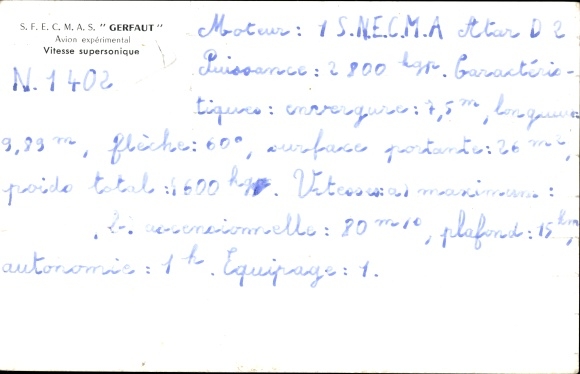 S. F. E. C. M. A. S. " GERFAUT "
Avion expérimental
Vitesse supersonique
N. 1402
Moteur : 1 S.N.E.C.M.A Atar D 2
Puissance : 2 800 kgp. Caractéris-
tiques : envergure : 7,5 m, longueur :
9,89 m, flèche : 60°, surface portante : 26 m2,
poids total : 600 kgp. Vitesses : a) maximum :
ascensionnelle : 80 m/s, plafond : 15 km,
autonomie : 1 h. Equipage : 1.